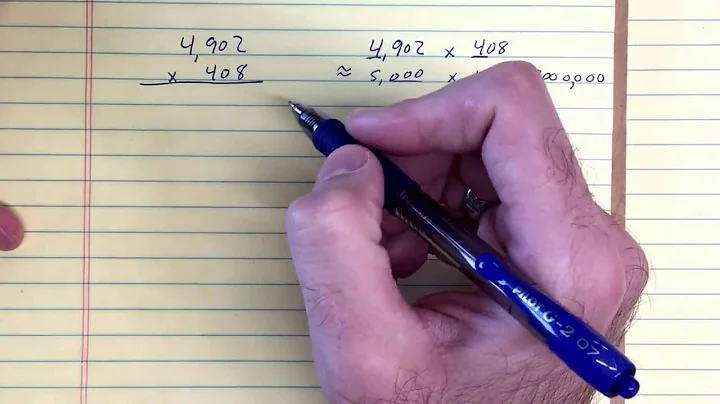 4,902
x 408
4,902 x 408
≈ 5,000 x 00,000
PILOT G-2 07